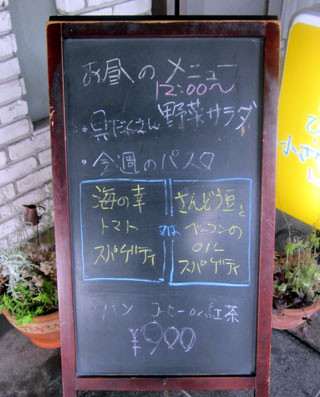 お昼のメニュー
12:00〜
・具だくさん 野菜サラダ
・今週のパスタ
海の幸
トマト
スパゲティ
or
さんどう豆と
ベーコンの
OIL
スパゲティ
・パン コーヒーor紅茶
¥900